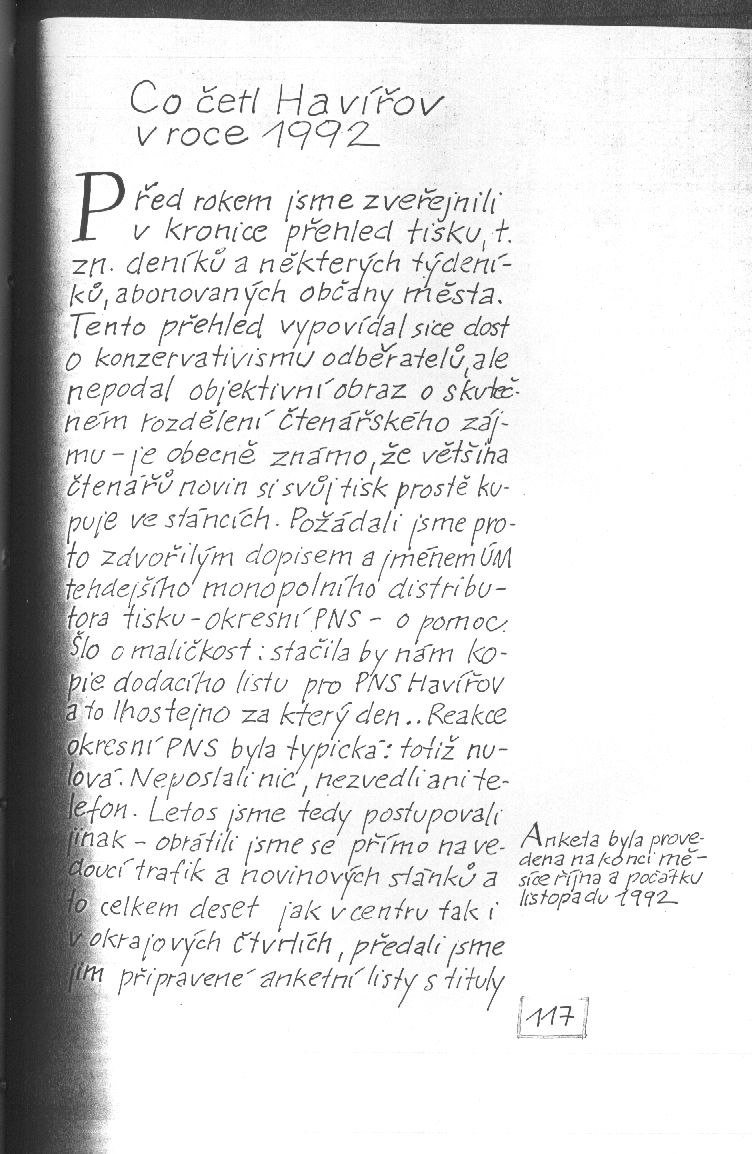 Co četl Havířov
v roce 1992
Před rokem jsme zveřejnili
v kronice přehled tisku, t.
zn. deníků a některých týdení-
ků, abonovaných občany města.
Tento přehled vypovídal sice dost
o konzervativismu odběratelů, ale
nepodal objektivní obraz o skuteč-
ném rozdělení čtenářského záj-
mu - je obecně známo, že většina
čtenářů novin si svůj tisk prostě ku-
puje ve stáncích. Požádali jsme pro-
to zdvořilým dopisem a jménem ÚM
tehdejšího monopolního distribu-
tora tisku - okresní PNS - o pomoc.
Šlo o maličkost: stačila by nám ko-
pie dodacího listu pro PNS Havířov
a to lhostejno za který den.. Reakce
okresní PNS byla typická: totiž nu-
lová. Neposlali nic, nezvedli ani te-
lefon. Letos jsme tedy postupovali
jinak - obrátili jsme se přímo na ve-
doucí trafik a novinových stánků a
to celkem deset jak v centru tak i
v okrajových čtvrtích, předali jsme
jim připravené anketní listy s tituly
Anketa byla prove-
dena na konci mě-
síce října a počátku
listopadu 1992
117